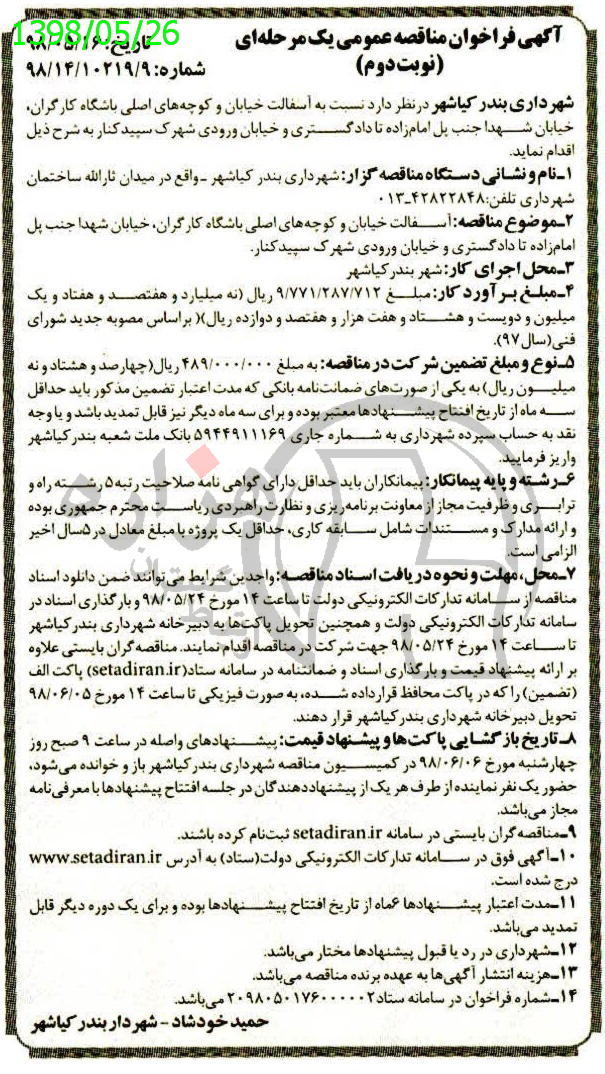 1398/05/26
آگهی فراخوان مناقصه عمومی یک مرحله‌ای
(نوبت دوم)
تاریخ: ۹۸/۰۵/۱۶
شماره: ۹۸/۱۴/۱۰۲۱۹/۹
شهرداری بندر کیاشهر درنظر دارد نسبت به آسفالت خیابان و کوچه‌های اصلی باشگاه کارگران،
خیابان شهدا جنب پل امام‌زاده تا دادگستری و خیابان ورودی شهرک سپیدکنار به شرح ذیل
اقدام نماید.
۱ـ نام و نشانی دستگاه مناقصه گزار: شهرداری بندر کیاشهر ـ واقع در میدان ثارالله ساختمان
شهرداری تلفن: ۴۲۸۲۲۸۴۸ـ۰۱۳
۲ـ موضوع مناقصه: آسفالت خیابان و کوچه‌های اصلی باشگاه کارگران، خیابان شهدا جنب پل
امام‌زاده تا دادگستری و خیابان ورودی شهرک سپیدکنار.
۳ـ محل اجرای کار: شهر بندر کیاشهر
۴ـ مبلغ برآورد کار: مبلغ ۹/۷۷۱/۲۸۷/۷۱۲ ریال (نه میلیارد و هفتصد و هفتاد و یک
میلیون و دویست و هشتاد و هفت هزار و هفتصد و دوازده ریال)( براساس مصوبه جدید شورای
فنی(سال۹۷).
۵ـ نوع و مبلغ تضمین شرکت در مناقصه: به مبلغ ۴۸۹/۰۰۰/۰۰۰ ریال(چهارصد و هشتاد و نه
میلیون ریال) به یکی از صورت‌های ضمانت‌نامه بانکی که مدت اعتبار تضمین مذکور باید حداقل
سه ماه از تاریخ افتتاح پیشنهادها معتبر بوده و برای سه ماه دیگر نیز قابل تمدید باشد و یا وجه
نقد به حساب سپرده شهرداری به شماره جاری ۵۹۴۴۹۱۱۱۶۹ بانک ملت شعبه بندر کیاشهر
واریز فرمایید.
۶ـ رشته و پایه پیمانکار: پیمانکاران باید حداقل دارای گواهی نامه صلاحیت رتبه۵ رشته راه و
ترابری و ظرفیت مجاز از معاونت برنامه‌ریزی و نظارت راهبردی ریاست محترم جمهوری بوده
و ارائه مدارک و مستندات شامل سابقه کاری، حداقل یک پروژه با مبلغ معادل در ۵سال اخیر
الزامی است.
۷ـ محل، مهلت و نحوه دریافت اسناد مناقصه: واجدین شرایط می‌توانند ضمن دانلود اسناد
مناقصه از سامانه تدارکات الکترونیکی دولت تا ساعت ۱۴ مورخ ۹۸/۰۵/۲۴ و بارگذاری اسناد در
سامانه تدارکات الکترونیکی دولت و همچنین تحویل پاکت‌ها به دبیرخانه شهرداری بندر کیاشهر
تا ساعت ۱۴ مورخ ۹۸/۰۵/۲۴ جهت شرکت در مناقصه اقدام نمایند. مناقصه گران بایستی علاوه
بر ارائه پیشنهاد قیمت و بارگذاری اسناد و ضمانتنامه در سامانه ستاد(setadiran.ir) پاکت الف
(تضمین) را که در پاکت محافظ قرارداده شده، به صورت فیزیکی تا ساعت ۱۴ مورخ ۹۸/۰۶/۰۵
تحویل دبیرخانه شهرداری بندر کیاشهر قرار دهند.
۸ـ تاریخ بازگشایی پاکت‌ها و پیشنهاد قیمت: پیشنهادهای واصله در ساعت ۹ صبح روز
چهارشنبه مورخ ۹۸/۰۶/۰۶ در کمیسیون مناقصه شهرداری بندر کیاشهر باز و خوانده می‌شود،
حضور یک نفر نماینده از طرف هر یک از پیشنهاددهندگان در جلسه افتتاح پیشنهادها با معرفی‌نامه
مجاز می‌باشد.
۹ـ مناقصه‌گران بایستی در سامانه setadiran.ir ثبت‌نام کرده باشند.
۱۰ـ آگهی فوق در سامانه تدارکات الکترونیکی دولت(ستاد) به آدرس www.setadiran.ir
درج شده است.
۱۱ـ مدت اعتبار پیشنهادها ۶ماه از تاریخ افتتاح پیشنهادها بوده و برای یک دوره دیگر قابل
تمدید می‌باشد.
۱۲ـ شهرداری در رد یا قبول پیشنهادها مختار می‌باشد.
۱۳ـ هزینه انتشار آگهی‌ها به عهده برنده مناقصه می‌باشد.
۱۴ـ شماره فراخوان در سامانه ستاد ۲۰۹۸۰۵۰۱۷۶۰۰۰۰۰۲ می‌باشد.
حمید خودشاد - شهردار بندر کیاشهر
هزاره